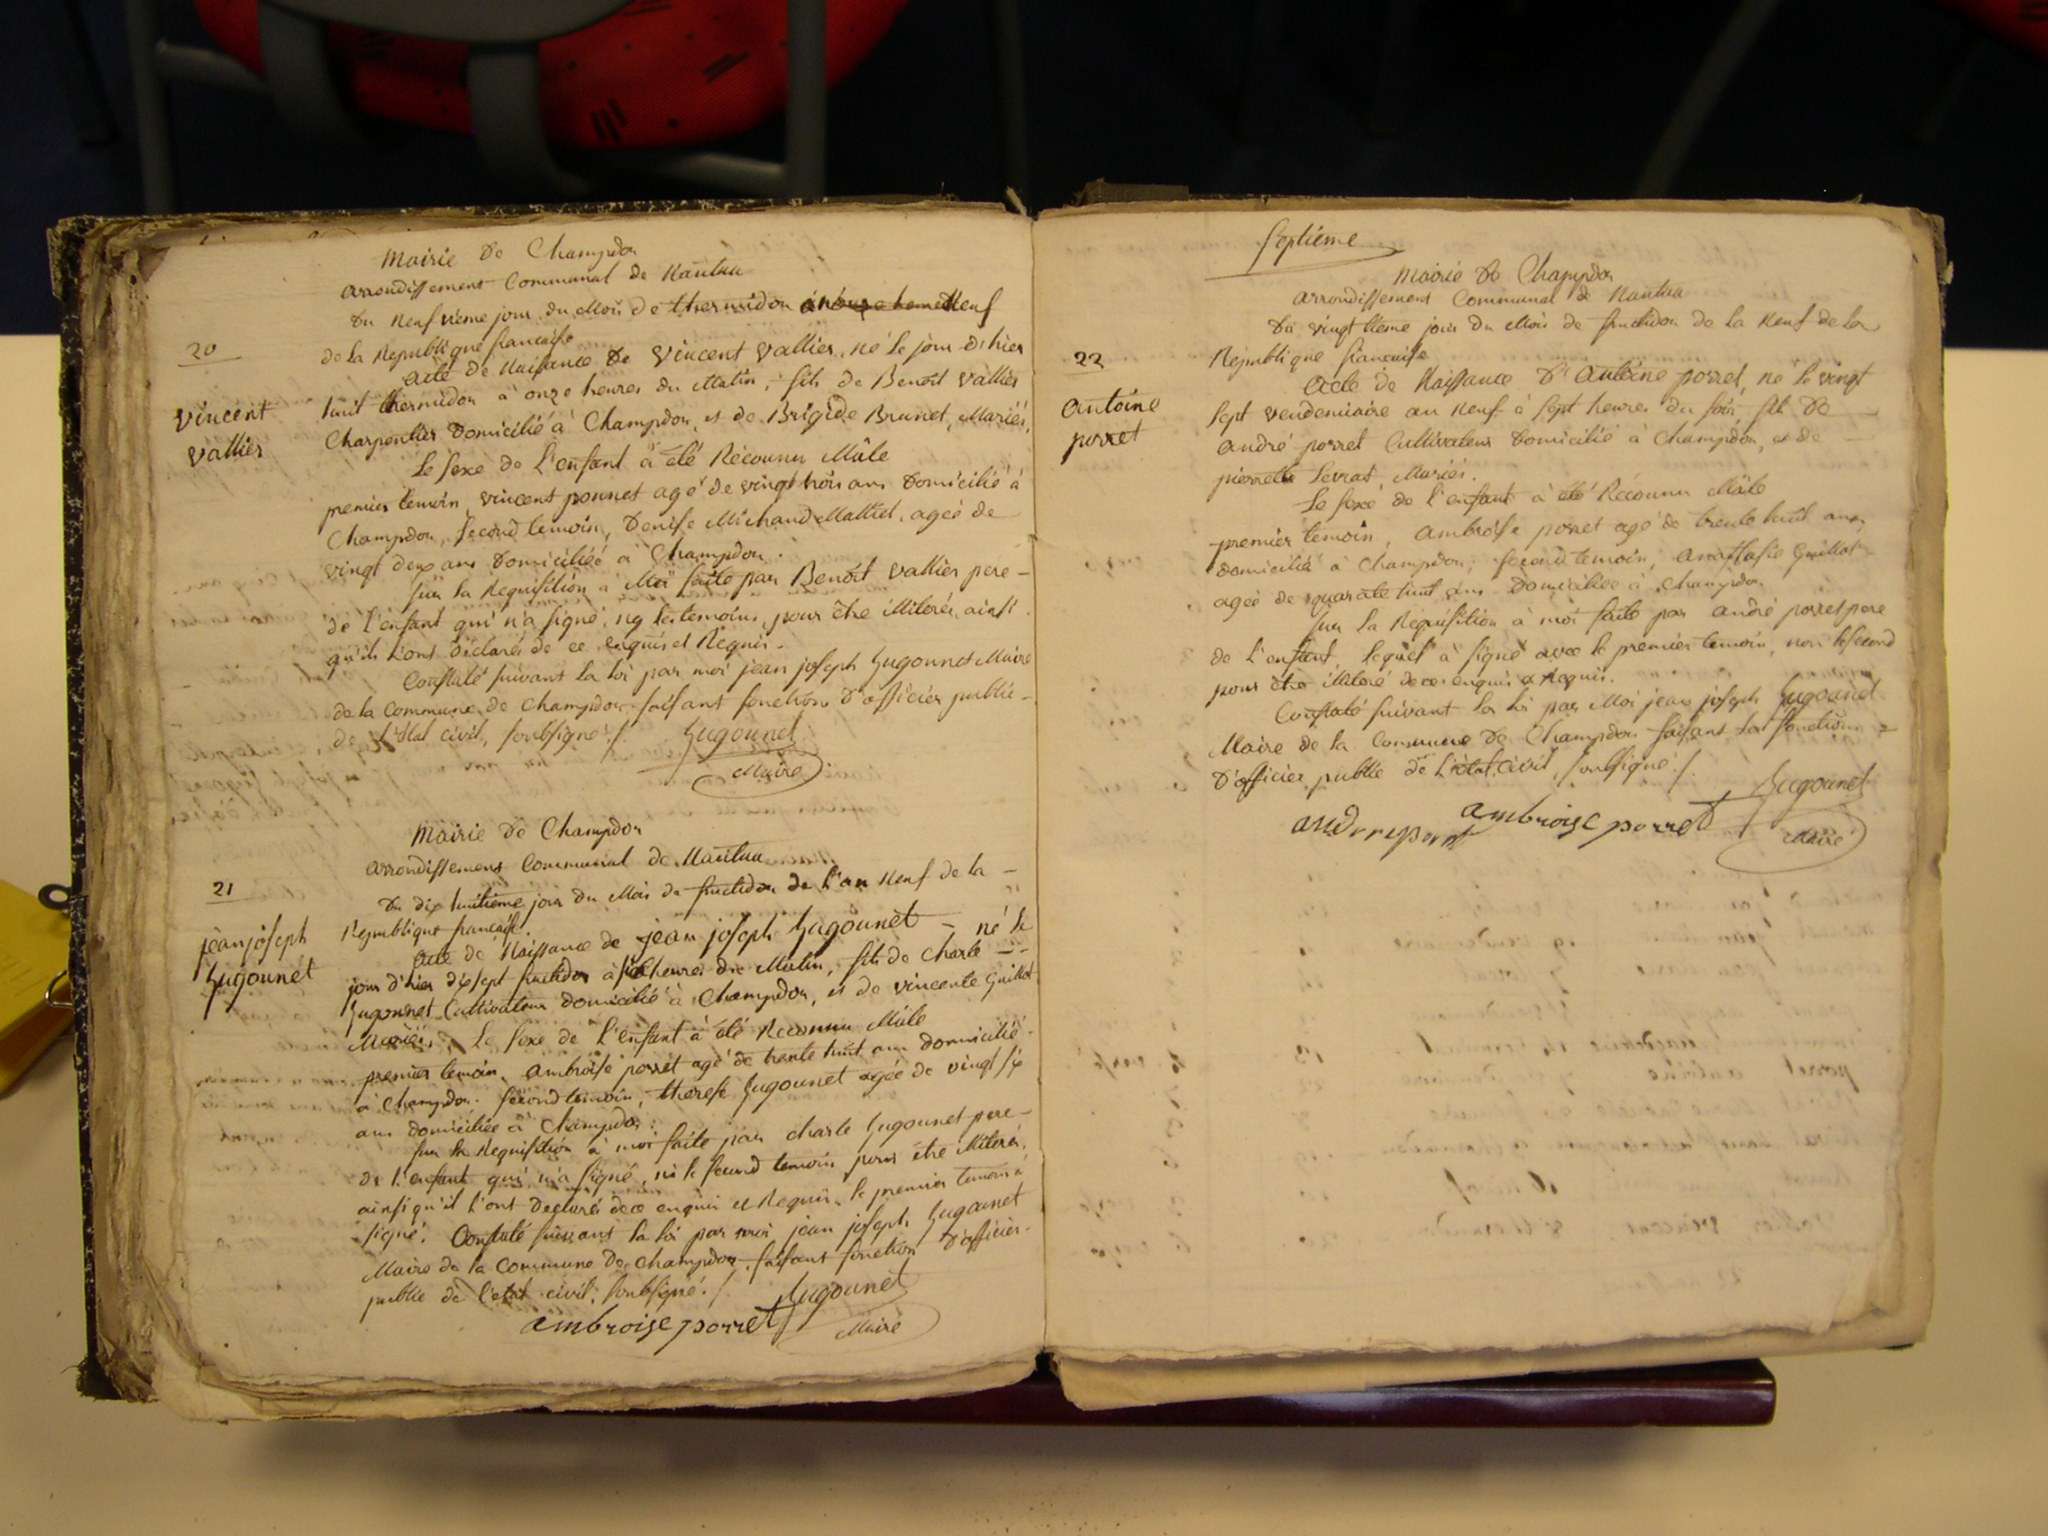 Mairie de Champdor
arrondissement Communal de Nantua
Du Neufvieme jour du Mois de thermidor Neuf
de la Republique francaise
20
acte de Naissance de Vincent Vallier, né le jour d'hier
Vincent
Vallier
huit thermidor à onze heures du Matin, fils de Benoît Vallier
Charpentier Domicilié à Champdor, et de Brigide Brunet, Mariés,
Le sexe de L'enfant à été Réconnu Mâle
premier temoin, vincent ponnet agé de vingt trois ans Domicilié à
Champdor, second temoin, Denise Michaud Mallict, ageé de
vingt deux ans Domiciliéé à Champdor.
sur la Requisition à Moi faite par Benoît Vallier pere
de l'enfant qui n'a signé, ny les temoins, pour être illiterés, ainsi
qu'ils L'ont déclarés de ce enquis et Requis.
Constaté suivant la loi par moi jean joseph Gugonnet Maire
de la Commune de Champdor faisant fonction d'officier public
de l'état civil, soubsigné ./.
Gugounet
Maire
Mairie de Champdor
arrondissement Communal de Nantua
21
Du dix huitieme jour du Mois de fructidor de L'an Neuf de la
Republique francaise
jean joseph
Gugounet
acte de Naissance de jean joseph Gugounet né le
jour d'hier dixsept fructidor à heures du Matin, fils de Charle
Gugounet Cultivateur Domicilié à Champdor, et de vincente Guillot
Mariés, Le sexe de L'enfant à été Reconnu Mâle
premier temoin, ambroise porret agé de trente huit ans domicilié
à Champdor. second temoin, therese Gugounet agée de vingt six
ans domiciliée à Champdor.
sur la Requisition à moi faite par charle Gugounet pere
de l'enfant qui n'a signé, ni le second temoin pour être illiterés,
ainsi qu'il l'ont declarés de ce enquis et Requis, le premier temoin à
signé. Constaté suivant la loi par moi jean joseph Gugounet
Maire de la Commune de Champdor faisant fonction d'officier
public de l'etat civil, soubsigné ./.
Gugounet
ambroise porret
Maire
septiéme
Mairie de Champdor
arrondissement Communal de Nantua
Du vingt jour du Mois de fructidor de la Neuf de la
22
Republique francaise
antoine
porret
acte de Naissance d'antoine porret, né le vingt
sept vendemiaire au Neuf à sept heures du soir, fils de
andré porret Cultivateur Domicilié à Champdor, et de
pierrette Levrat, Mariés.
Le sexe de L'enfant à été Réconnu Mâle
premier temoin, ambroise porret agé de trente huit ans
domicilié à Champdor; second temoin, anastasie Guillot
agée de quarante huit ans Domiciliée à Champdor
sur la Requisition à moi faite par andré porret pere
de L'enfant, lequel à signé avec le premier temoin, non le second
pour être illiteré de ce enquis & Requis.
Constaté suivant la loi par Moi jean joseph Gugounet
Maire de la Commune de Champdor faisant la fonction
d'officier public de L'état civil, soubsigné ./.
Gugounet
ambroise porret
andre porret
Maire